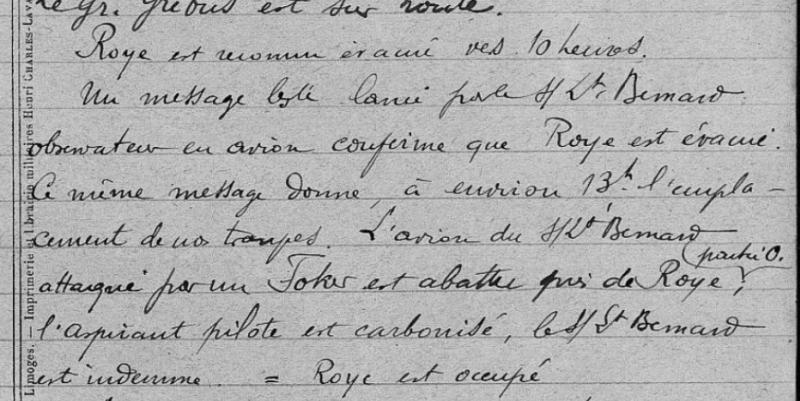 Le Gr. Gréous est sur route.
Roye est reconnu évacué ves 10 heures.
Un message lesté lancé par le S/Lt Bernard
observateur en avion confirme que Roye est évacué.
Ce même message donne, à environ 13h l'empla-
cement de nos troupes. L'avion du S/Lt Bernard
(partie O.
attaqué par un Foker est abattu près de Roye ;
l'aspirant pilote est carbonisé, le S/Lt Bernard
est indemne. = Roye est occupé
Limoges. — Imprimerie et librairie militaires Henri CHARLES-LAVAU